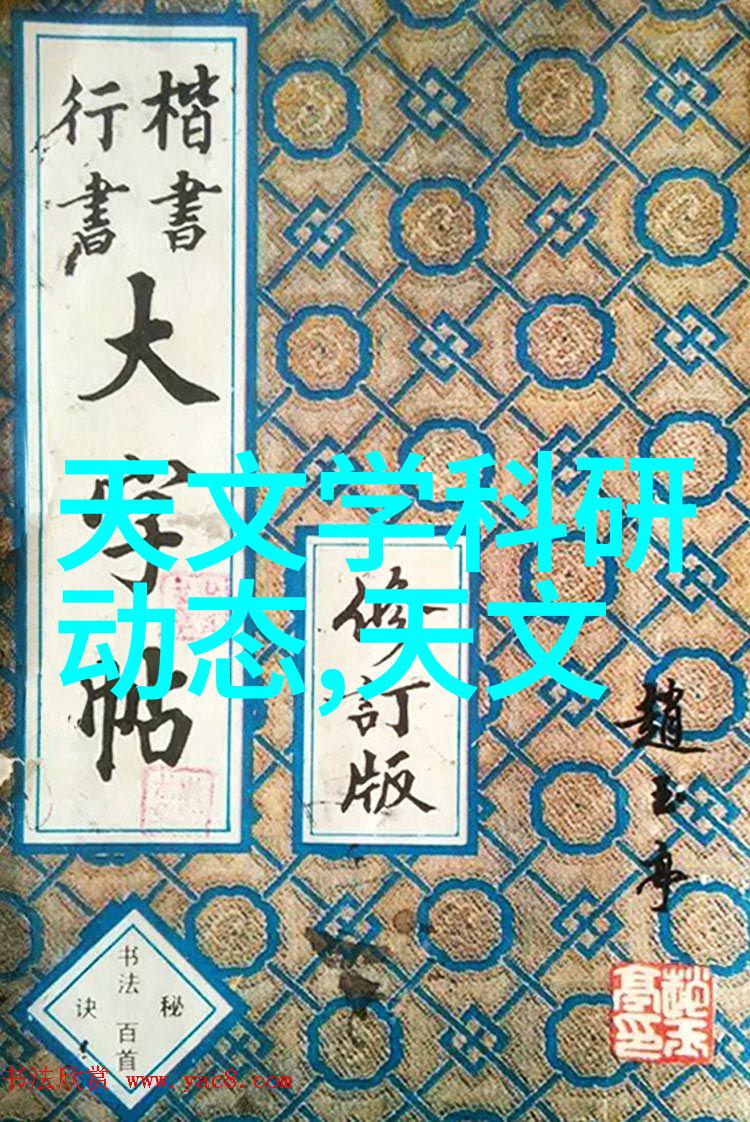 楷書
行書
大字帖
修訂版
趙玉亭
天文学科研
动态,天文
书法百首
秘诀
书法欣赏 www.yac8.com